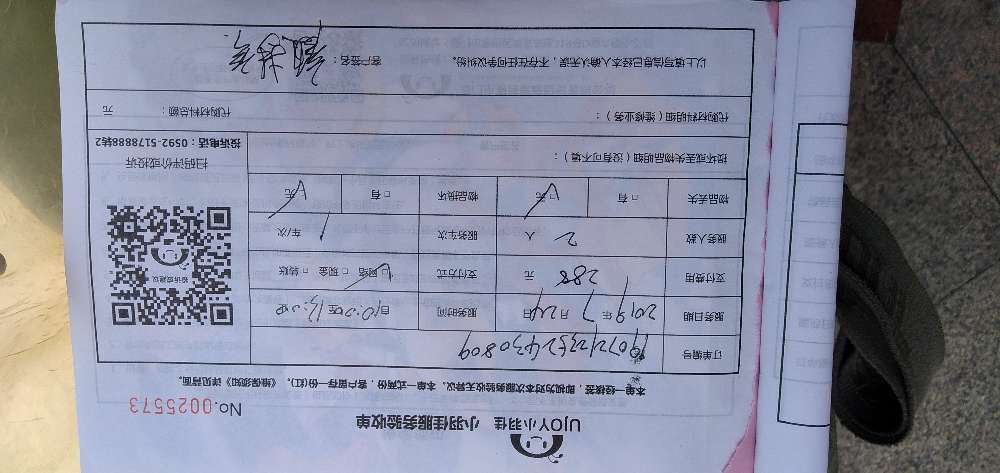 UJOY小羽佳 小羽佳服务验收单
No.0025573
本单一经核签,即视为对本次服务验收无异议。本单一式两份,客户留存一份(红)。《维保须知》详见背面。
订单编号
服务日期 2019年7月24日 服务时间
支付费用 288 元 支付方式 网络 □现金 □转账
服务人数 2 人 服务车次 1 车/次
物品丢失 □有 □无 物品损坏 □有 □无
损坏或丢失物品明细(没有可不填):
代购材料明细(维修业务): 代购材料总额: 元
以上填写信息已经本人确认无误,不存在任何争议纠纷。 客户签名:
投诉或建议
扫码评价或投诉
投诉电话:0592-5178888转2